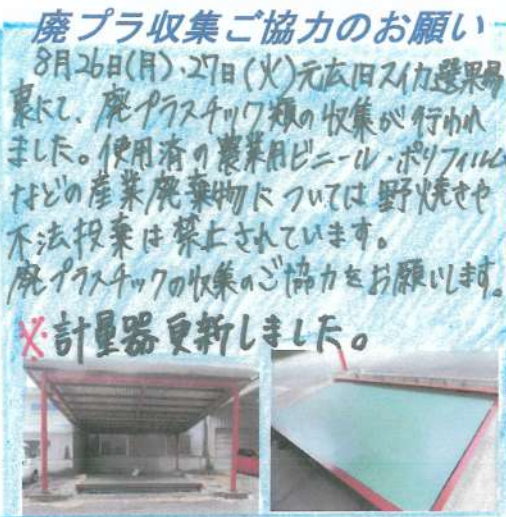 廃プラ収集ご協力のお願い
8月26日(月)、27日(火)元広旧スイカ選果場
裏にて、廃プラスチック類の収集が行われ
ました。使用済の農業用ビニール・ポリフィルム
などの産業廃棄物については野焼きや
不法投棄は禁止されています。
廃プラスチックの収集のご協力をお願いします。
※計量器更新しました。